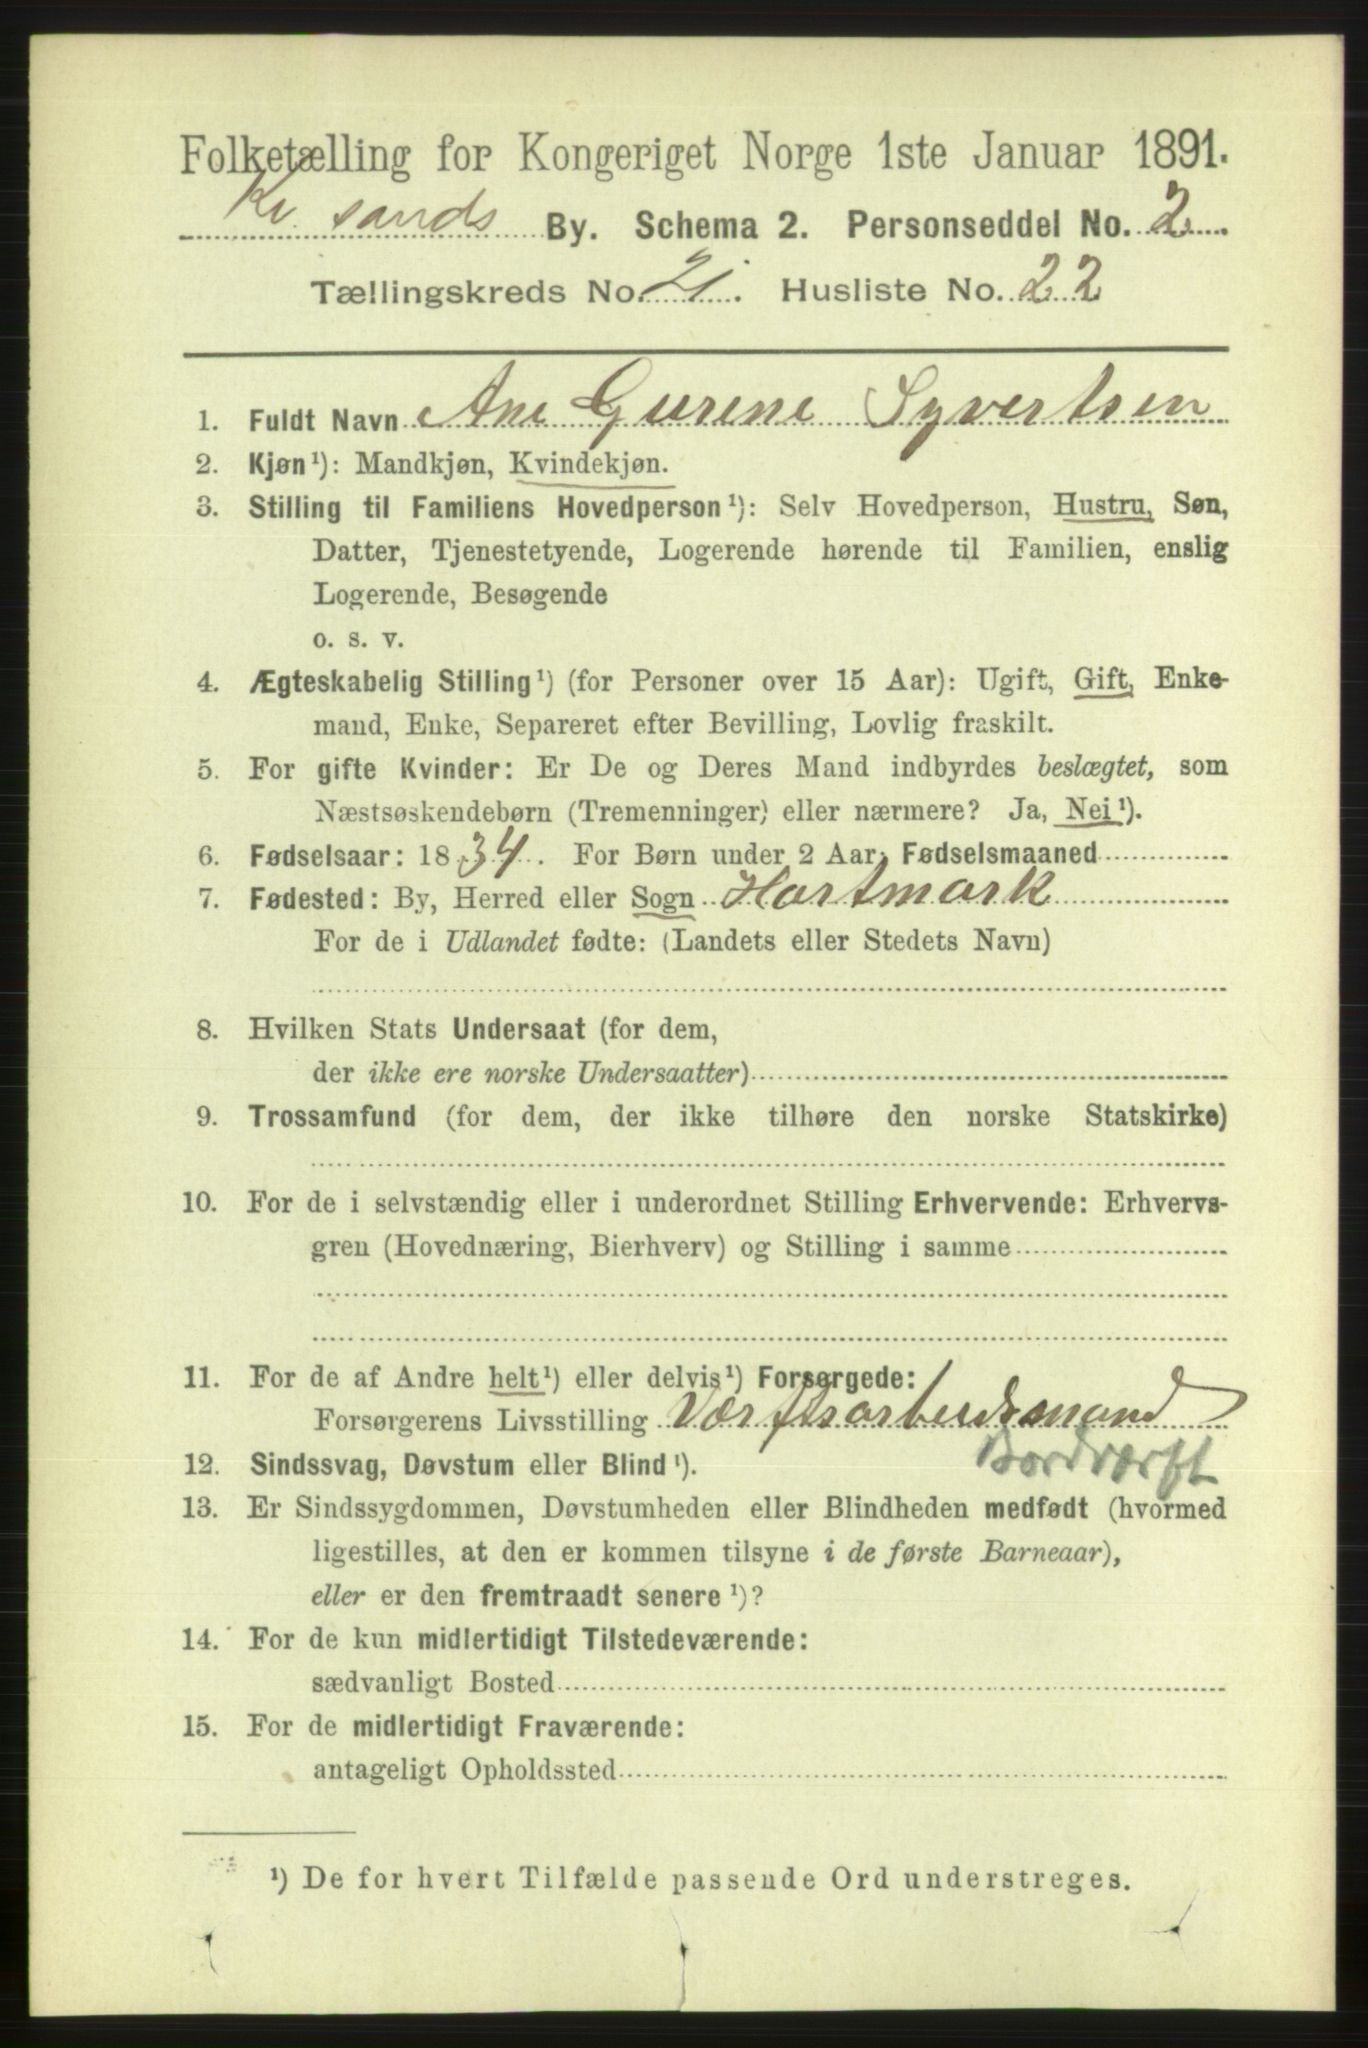 Folketælling for Kongeriget Norge 1ste Januar 1891.
Kr. sands By. Schema 2. Personseddel No. 2
Tællingskreds No. 21. Husliste No. 22
1. Fuldt Navn Ane Gurine Syvertsen
2. Kjøn¹): Mandkjøn, Kvindekjøn.
3. Stilling til Familiens Hovedperson¹): Selv Hovedperson, Hustru, Søn,
Datter, Tjenestetyende, Logerende hørende til Familien, enslig
Logerende, Besøgende
o. s. v.
4. Ægteskabelig Stilling¹) (for Personer over 15 Aar): Ugift, Gift, Enke-
mand, Enke, Separeret efter Bevilling, Lovlig fraskilt.
5. For gifte Kvinder: Er De og Deres Mand indbyrdes beslægtet, som
Næstsøskendebørn (Tremenninger) eller nærmere? Ja, Nei¹).
6. Fødselsaar: 1834. For Børn under 2 Aar: Fødselsmaaned
7. Fødested: By, Herred eller Sogn Hartmark
For de i Udlandet fødte: (Landets eller Stedets Navn)
8. Hvilken Stats Undersaat (for dem,
der ikke ere norske Undersaatter)
9. Trossamfund (for dem, der ikke tilhøre den norske Statskirke)
10. For de i selvstændig eller i underordnet Stilling Erhvervende: Erhvervs-
gren (Hovednæring, Bierhverv) og Stilling i samme
11. For de af Andre helt¹) eller delvis¹) Forsørgede:
Forsørgerens Livsstilling Værftsarbeidsmand
Bordværft
12. Sindssvag, Døvstum eller Blind¹).
13. Er Sindssygdommen, Døvstumheden eller Blindheden medfødt (hvormed
ligestilles, at den er kommen tilsyne i de første Barneaar),
eller er den fremtraadt senere¹)?
14. For de kun midlertidigt Tilstedeværende:
sædvanligt Bosted
15. For de midlertidigt Fraværende:
antageligt Opholdssted
¹) De for hvert Tilfælde passende Ord understreges.